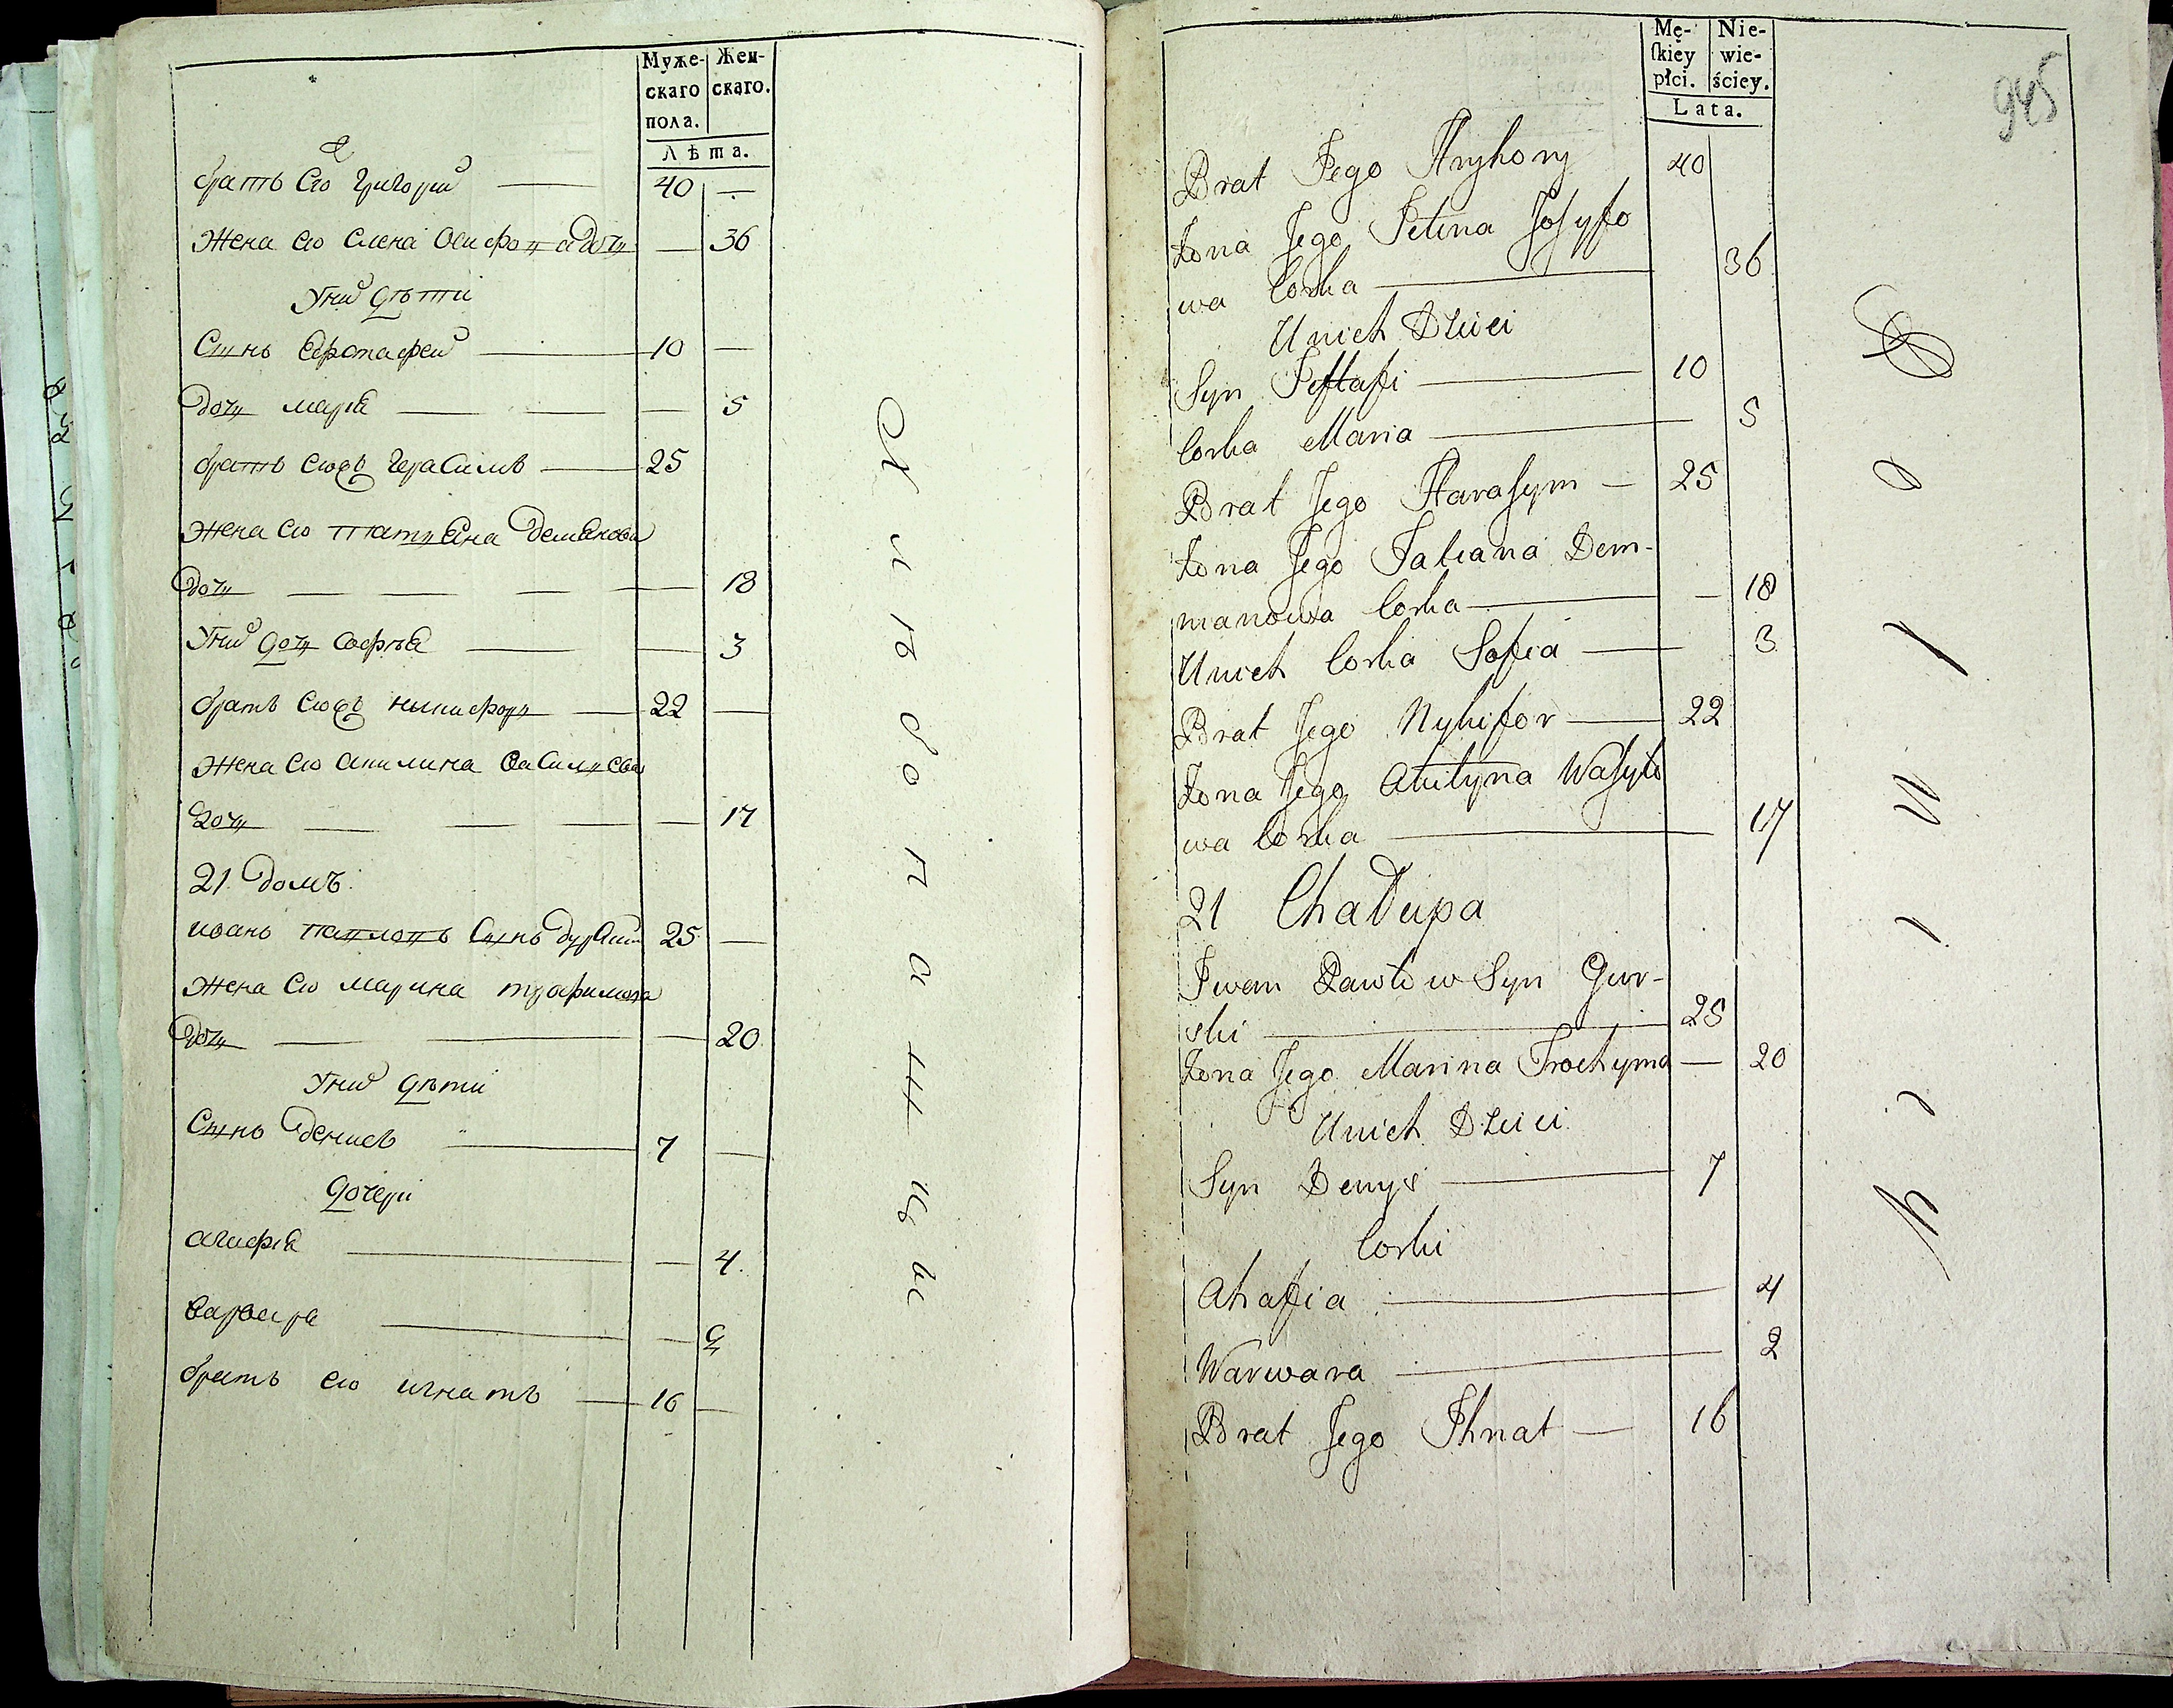 Муже-
скаго
пола.
Жен-
скаго.
Лѣта.
братъ Его Григорий — 40 —
Жена его Елена Осифова дочь — 36
У них дѣти
Сынъ Евстафей — 10 —
Дочь марія — 5
братъ Его Герасимъ — 25
Жена его татьяна Демянова
Дочь — 18
У них дочь софья — 3
братъ его никифоръ — 22 —
Жена его акилина васильева
дочь — 17
21. Домъ.
иванъ павловъ Сынъ 25 —
Жена его марина трофимова
дочь — 20
У них дѣти
Сынъ Денисъ — 7 —
дочери
агафія — 4.
варвара — 2
братъ его игнатъ — 16 —
Mę-
ſkiey
płci.
Nie-
wie-
ściey.
Lata.
945
Brat Jego Hryhory 40
Żona Jego Jelena Josyfo
wa Corka — 36
U nich Dzieci
Syn Jeſtafi — 10
Corka Maria — 5
Brat Jego Harasym — 25
Żona Jego Tatiana Dem-
manowa Corka — 18
U nich Corka Sofia — 3
Brat Jego Nykifor — 22
Żona Jego Akilyna Wasyło
wa Corka — 17
21 Chałupa
Iwan Pawłow Syn Gur-
ski — 25
Żona Jego Marina Trochyma — 20
U nich Dzieci
Syn Denys — 7
Corki
Ahafia — 4
Warwara — 2
Brat Jego Ihnat — 16